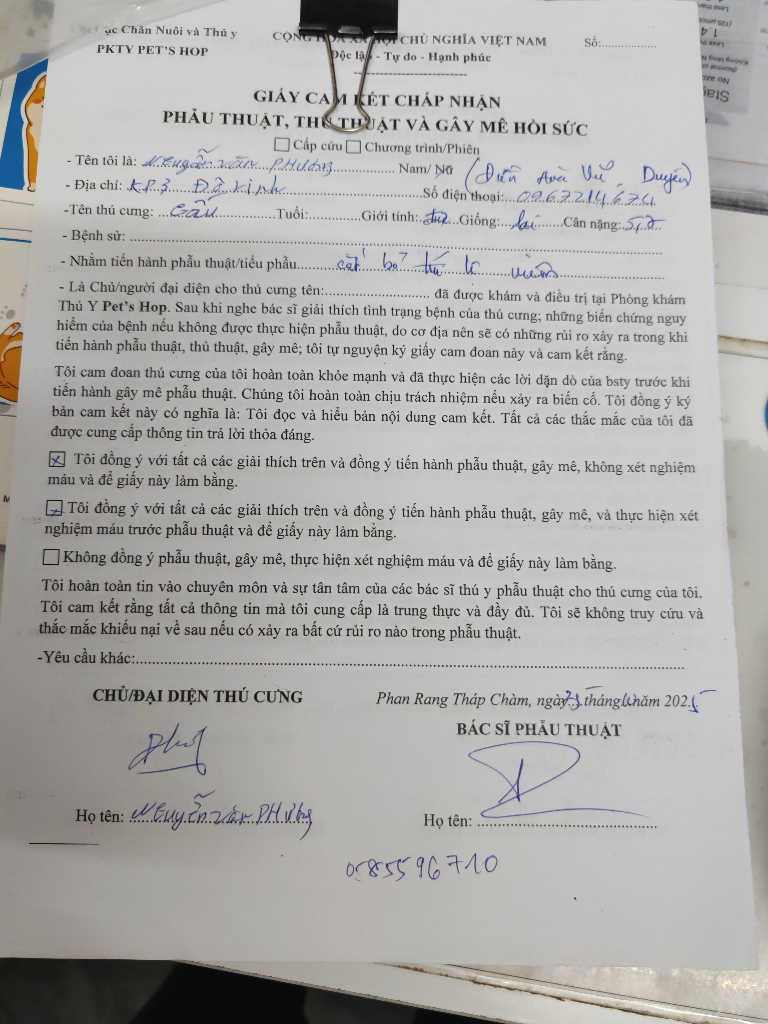 Chi Cục Chăn Nuôi và Thú y
PKTY PET'S HOP
CỘNG HÒA XÃ HỘI CHỦ NGHĨA VIỆT NAM
Độc lập - Tự do - Hạnh phúc
Số:..................
GIẤY CAM KẾT CHẤP NHẬN
PHẪU THUẬT, THỦ THUẬT VÀ GÂY MÊ HỒI SỨC
Cấp cứu Chương trình/Phiên
- Tên tôi là: Nguyễn Văn Phương Nam/ Nữ Duyên)
- Địa chỉ: KP3 Số điện thoại: 0967214674
-Tên thú cưng: Gấu Tuổi: Giới tính: đực Giống: lai Cân nặng:
- Bệnh sử:
- Nhằm tiến hành phẫu thuật/tiểu phẫu cắt bỏ viêm
- Là Chủ/người đại diện cho thú cưng tên: đã được khám và điều trị tại Phòng khám
Thú Y Pet's Hop. Sau khi nghe bác sĩ giải thích tình trạng bệnh của thú cưng; những biến chứng nguy
hiểm của bệnh nếu không được thực hiện phẫu thuật, do cơ địa nên sẽ có những rủi ro xảy ra trong khi
tiến hành phẫu thuật, thủ thuật, gây mê; tôi tự nguyện ký giấy cam đoan này và cam kết rằng.
Tôi cam đoan thú cưng của tôi hoàn toàn khỏe mạnh và đã thực hiện các lời dặn dò của bsty trước khi
tiến hành gây mê phẫu thuật. Chúng tôi hoàn toàn chịu trách nhiệm nếu xảy ra biến cố. Tôi đồng ý ký
bản cam kết này có nghĩa là: Tôi đọc và hiểu bản nội dung cam kết. Tất cả các thắc mắc của tôi đã
được cung cấp thông tin trả lời thỏa đáng.
Tôi đồng ý với tất cả các giải thích trên và đồng ý tiến hành phẫu thuật, gây mê, không xét nghiệm
máu và để giấy này làm bằng.
Tôi đồng ý với tất cả các giải thích trên và đồng ý tiến hành phẫu thuật, gây mê, và thực hiện xét
nghiệm máu trước phẫu thuật và để giấy này làm bằng.
Không đồng ý phẫu thuật, gây mê, thực hiện xét nghiệm máu và để giấy này làm bằng.
Tôi hoàn toàn tin vào chuyên môn và sự tân tâm của các bác sĩ thú y phẫu thuật cho thú cưng của tôi.
Tôi cam kết rằng tất cả thông tin mà tôi cung cấp là trung thực và đầy đủ. Tôi sẽ không truy cứu và
thắc mắc khiếu nại về sau nếu có xảy ra bất cứ rủi ro nào trong phẫu thuật.
-Yêu cầu khác:
CHỦ/ĐẠI DIỆN THÚ CƯNG
Phan Rang Tháp Chàm, ngày tháng năm 2025
BÁC SĨ PHẪU THUẬT
Họ tên: Nguyễn Văn Phương
Họ tên:
0585596710